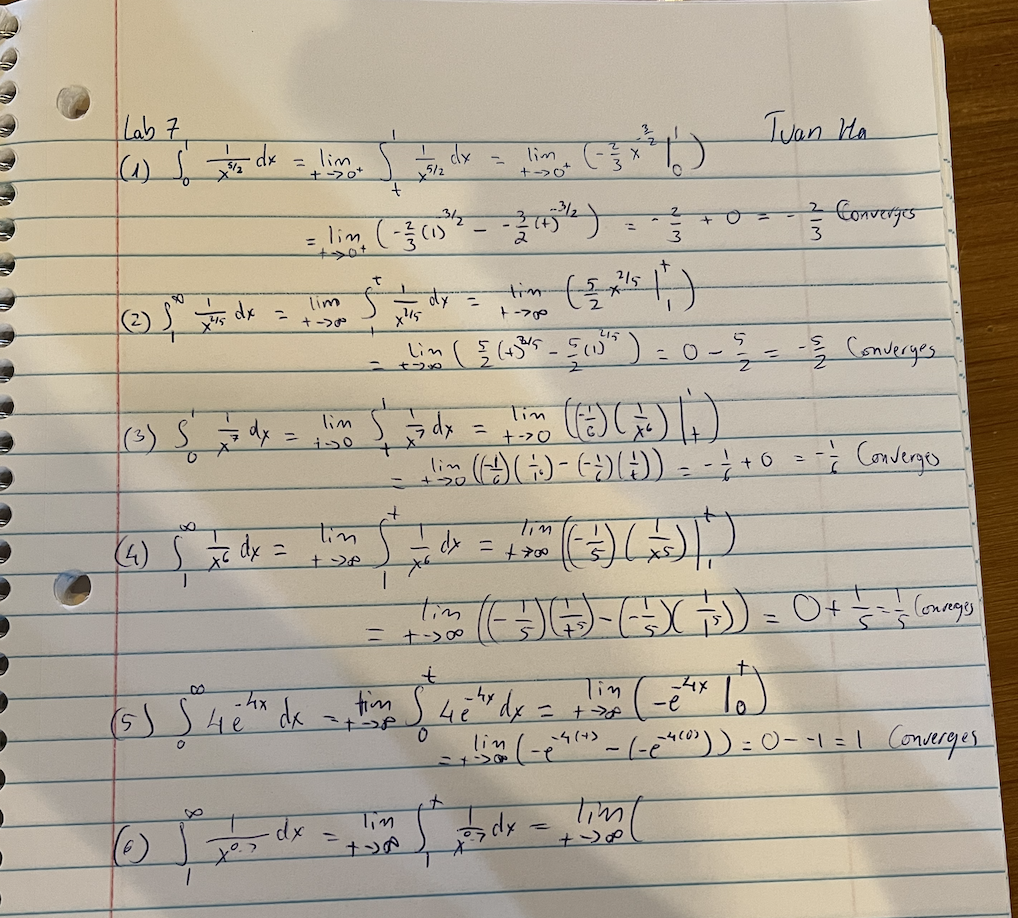 Lab 7 Tuan Ha
(1) ∫₀¹ 1/x^(5/2) dx = lim t→0⁺ ∫ₜ¹ 1/x^(5/2) dx = lim t→0⁺ (-2/3 x^(-3/2) |₀¹)
= lim t→0⁺ (-2/3 (1)^(-3/2) - -3/2 (t)^(-3/2)) = -2/3 + 0 = -2/3 Converges
(2) ∫₁^∞ 1/x^(2/5) dx = lim t→∞ ∫₁ᵗ 1/x^(2/5) dx = lim t→∞ (5/2 x^(2/5) |₁ᵗ)
= lim t→∞ (5/2 (t)^(2/5) - 5/2 (1)^(2/5)) = 0 - 5/2 = -5/2 Converges
(3) ∫₀¹ 1/x⁷ dx = lim t→0 ∫ₜ¹ 1/x⁷ dx = lim t→0 ((-1/6)(1/x⁶) |ₜ¹)
= lim t→0 ((-1/6)(1/1⁶) - (-1/6)(1/t)) = -1/6 + 0 = -1/6 Converges
(4) ∫₁^∞ 1/x⁶ dx = lim t→∞ ∫₁ᵗ 1/x⁶ dx = lim t→∞ ((-1/5)(1/x⁵) |₁ᵗ)
= lim t→∞ ((-1/5)(1/t⁵) - (-1/5)(1/1⁵)) = 0 + 1/5 = 1/5 Converges
(5) ∫₀^∞ 4e^(-4x) dx = lim t→∞ ∫₀ᵗ 4e^(-4x) dx = lim t→∞ (-e^(-4x) |₀ᵗ)
= lim t→∞ (-e^(-4(t)) - (-e^(-4(0)))) = 0 - -1 = 1 Converges
(6) ∫₁^∞ 1/x^(0.7) dx = lim t→∞ ∫₁ᵗ 1/x^(0.7) dx = lim t→∞ (